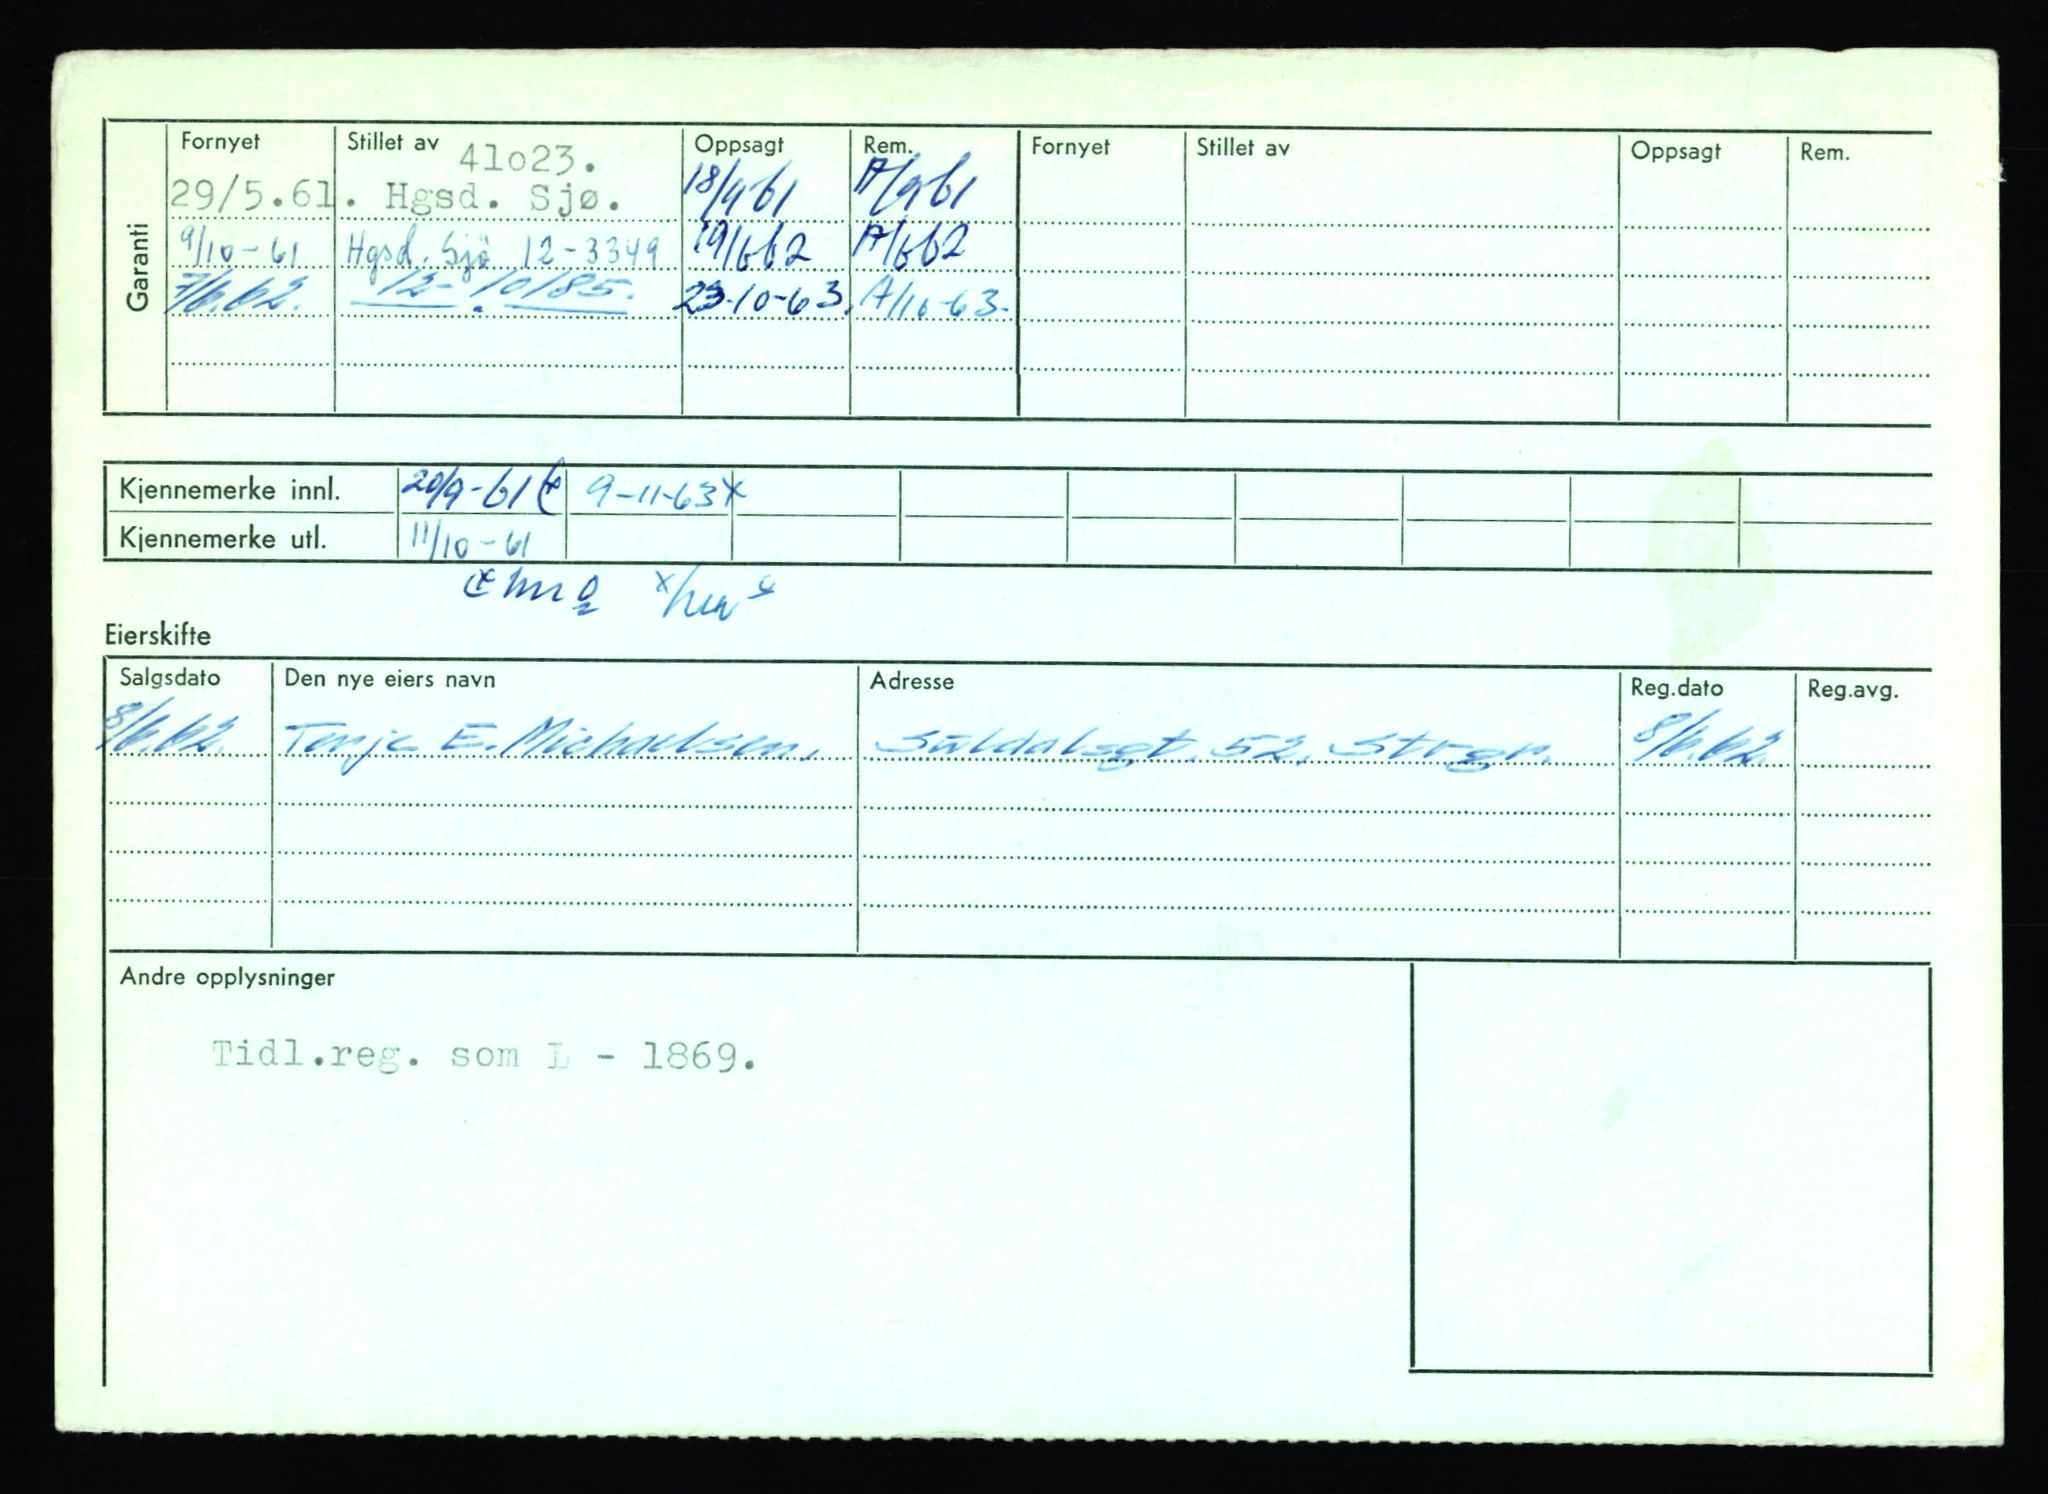 Garanti
Fornyet Stillet av Oppsagt Rem. Fornyet Stillet av Oppsagt Rem.
41o23.
29/5.61. Hgsd. Sjø. 18/9 61 A/9 61
9/10-61 Hgsd. Sjö 12-3349 19/6 62 A/6 62
7/6.62. 12-10185. 23-10-63. A/10-63.
Kjennemerke innl. 20/9-61 9-11-63 x
Kjennemerke utl. 11/10-61
Eierskifte
Salgsdato Den nye eiers navn Adresse Reg.dato Reg.avg.
8/6.62. Terje E. Michaelsen, Suldalsgt. 52, Stvgr. 8/6.62.
Andre opplysninger
Tidl.reg. som L - 1869.